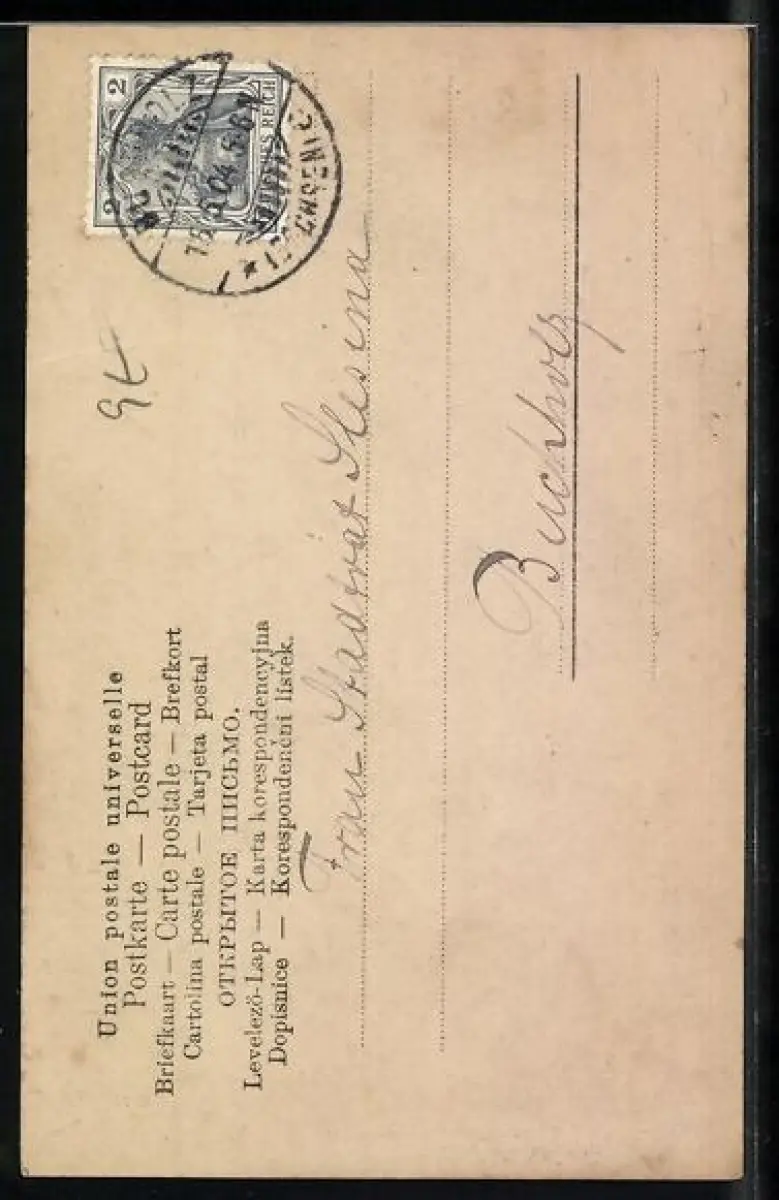 Union postale universelle
Postkarte — Postcard
Briefkaart — Carte postale — Brefkort
Cartolina postale — Tarjeta postal
ОТКРЫТОЕ ПИСЬМО.
Levelező-Lap — Karta korespondencyjna
Dopisnice — Korespondenční lístek.
2 2
DEUTSCHES REICH
04
Frau Stadtrat
Buchholz